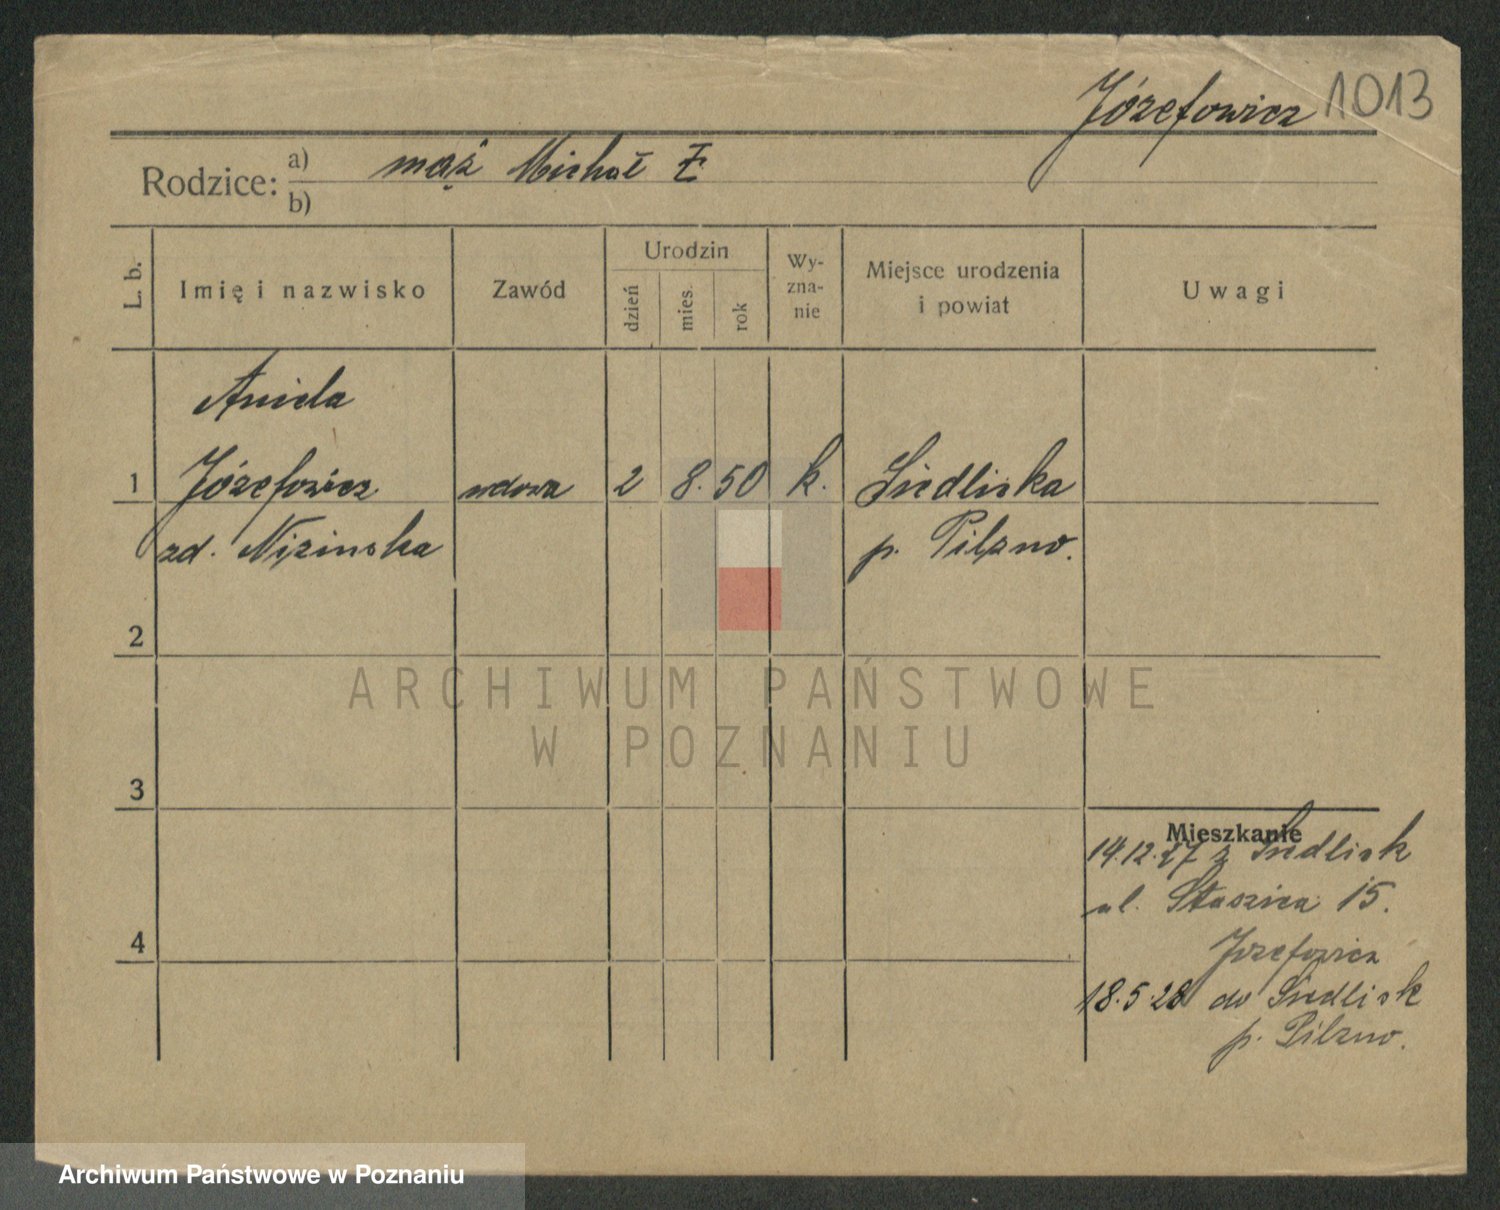 Józefowicz 1013
Rodzice: a) mąż Michał
b)
L. b.
Imię i nazwisko
Zawód
Urodzin
dzień
mies.
rok
Wy-
zna-
nie
Miejsce urodzenia
i powiat
Uwagi
Aniela
1 Józefowicz wdowa 2 8. 50 k. Siedliska
zd. Nizinska p. Pilzno.
2
ARCHIWUM PAŃSTWOWE
W POZNANIU
3
Mieszkanie
14.12.27 z Siedlisk
ul. Staszica 15.
4
Józefowicz
18.5.28 do Siedlisk
p. Pilzno.
Archiwum Państwowe w Poznaniu